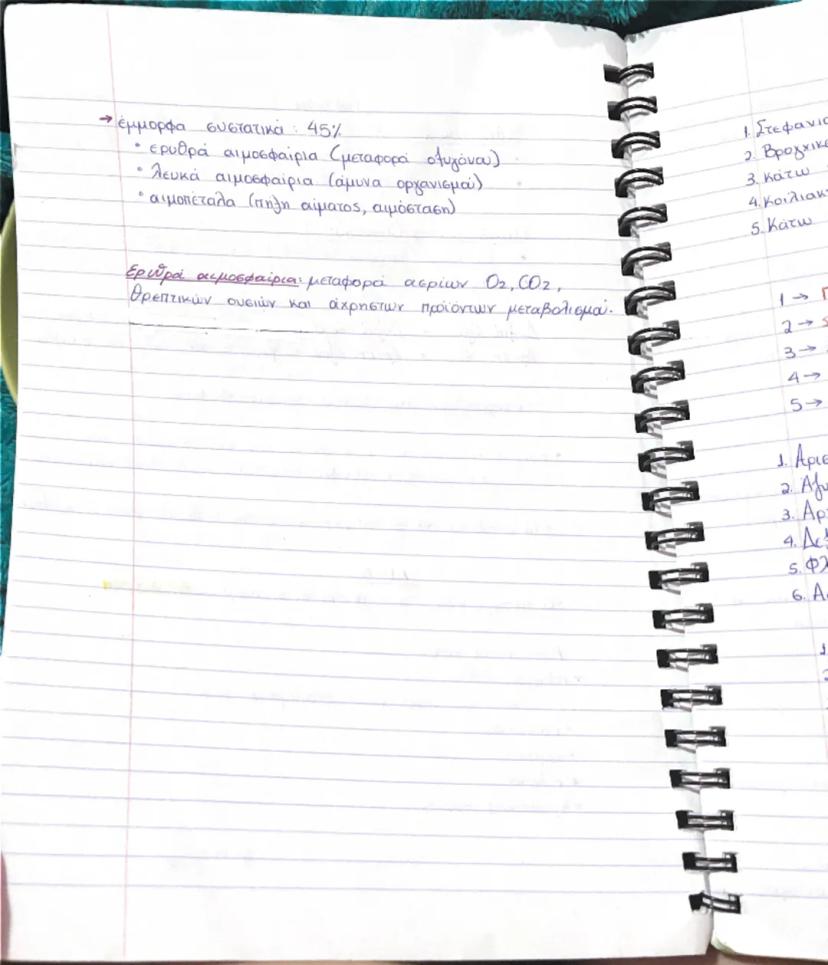 → έμμορφα συστατικά : 45%
• ερυθρά αιμοσφαίρια (μεταφορά οξυγόνου)
• λευκά αιμοσφαίρια (άμυνα οργανισμού)
• αιμοπέταλα (πήξη αίματος, αιμόσταση)
Ερυθρά αιμοσφαίρια: μεταφορά αερίων O2, CO2,
θρεπτικών ουσιών και άχρηστων προϊόντων μεταβολισμού.
1. Στεφανια
2. Βρογχικ
3. Κάτω
4. Κοιλιακ
5. Κάτω
1 →
2 →
3 →
4 →
5 →
1. Αρισ
2. Αζυ
3. Αρ
4. Δε
5. Φλ
6. Α